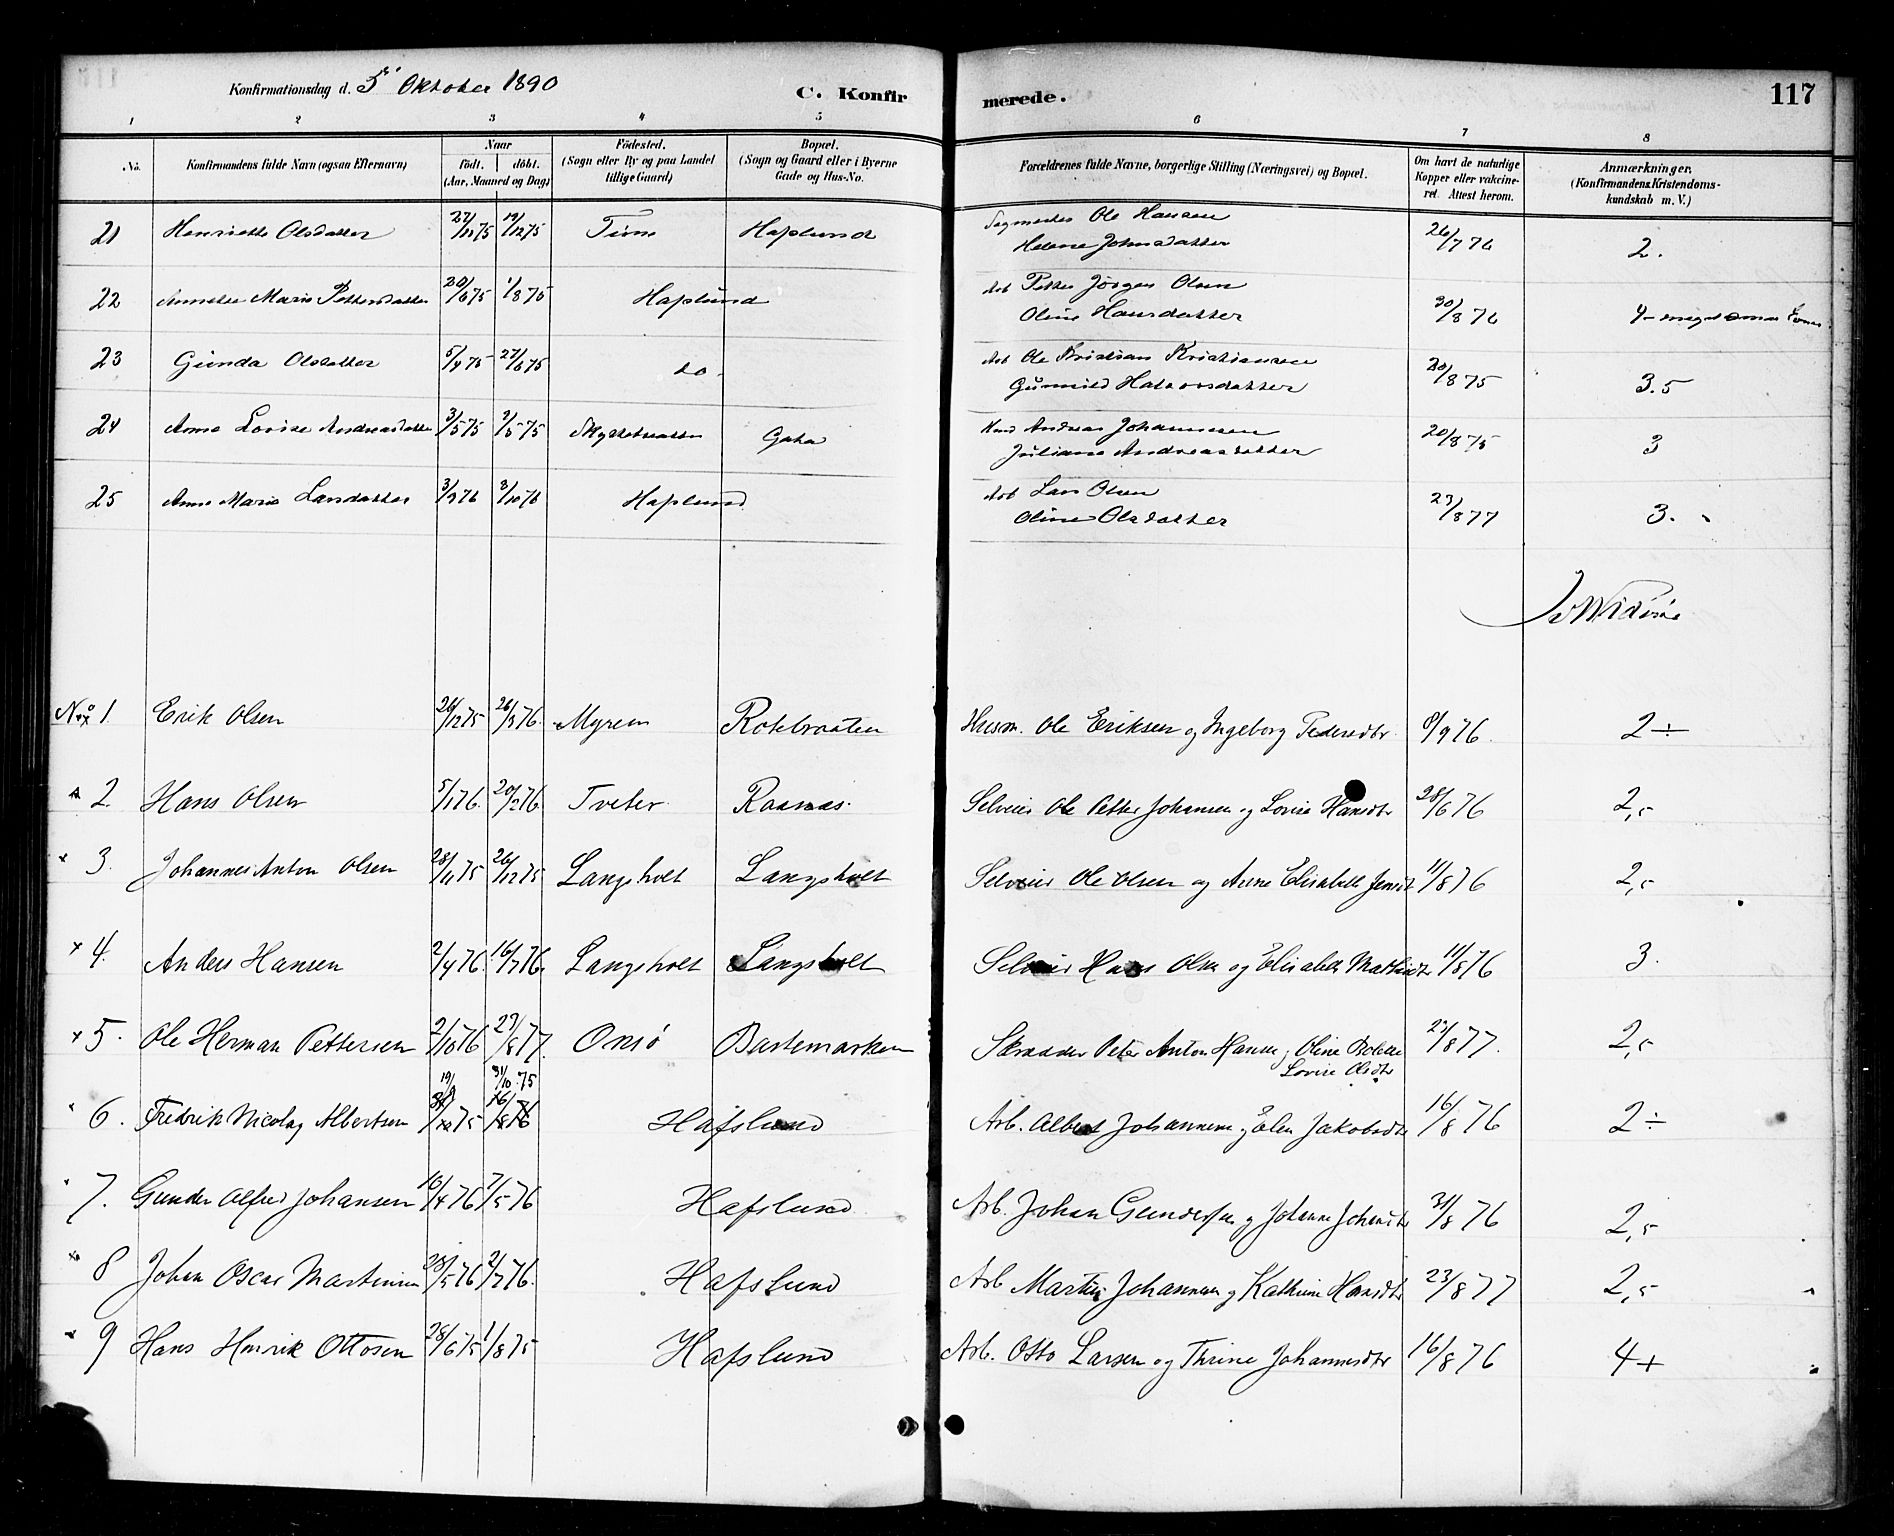 Konfirmationsdag d. 5te Oktober 1890
C. Konfirmerede.
117
1 2 3 4 5 6 7 8
No. Konfirmandens fulde Navn (ogsaa Efternavn) Naar födt. döbt. (Aar, Maaned og Dag) Födested. (Sogn eller By og paa Landet tillige Gaard) Bopæl. (Sogn og Gaard eller i Byerne Gade og Hus-No. Forældrenes fulde Navne, borgerlige Stilling (Næringsvei) og Bopæl. Om havt de naturlige Kopper eller vakcineret. Attest herom. Anmærkninger. (Konfirmandens Kristendomskundskab m. V.)
21 Henriette Olsdatter 27/11 75 19/12 75 Tune Haflund Sagmester Ole Hansen
Helene Johnsdatter 26/7 76 2.
22 Annette Marie Pettersdatter 20/6 75 1/8 75 Haflund Arb Petter Jörgen Olsen
Oline Hansdatter 30/8 76 4-
23 Gunda Olsdatter 5/4 75 27/6 75 do. Arb Ole Kristian Kristiansen
Gunnild Halvorsdatter 20/8 75 3.5
24 Anna Lovise Andreasdatter 3/5 75 Gata Andreas Johannesen
Juliane Andreasdatter 20/8 75 3
25 Anne Marie Larsdatter 3/9 76 8/10 76 Haflund Arb Lars Olsen
Oline Olsdatter 23/8 77 3.
No 1. Erik Olsen 26/12 75 26/3 76. Myren Rokbraaten Husm. Ole Eriksen og Ingeborg Pedersdtr 6/9 76. 2÷
2. Hans Olsen 5/1 76. 20/2 76. Tveter Raanaas. Selveier Ole Petter Johansen og Lovise Hansdtr 28/6 76 2,5
x 3. Johannes Anton Olsen 28/11 75 26/12 75 Langsholt Langsholt Selveier Ole Olsen og Anne Elisabeth Jensdt 11/8 76 2,5
x 4. Anders Hansen 2/4 76. 16/7 76. Langsholt Langsholt Selveier Hans Olsen og Elisabeth Mathisdtr 11/8 76 3.
x 5. Ole Herman Pettersen 2/10 76 23/8 77. Onsö Skrædder Peter Anton Hansen, Oline Bolette
Lovise Olsdtr 23/8 77. 2,5
19/9 31/10 75
6. Fredrik Nicolay Albertsen 75 Hafslund Arb. Albert Johannesen og Elen Jakobsdtr 16/8 76 2÷
7. Gunder Alfred Johansen 16/4 76 7/5 76 Hafslund Arb. Johan Gundersen og Johanne Johansdtr 31/8 76 2,5
8 Johan Oscar Martinsen 28/5 76 2/7 76. Hafslund Arb Martin Johannesen og Kathrine Hansdtr 23/8 77 2,5
9 Hans Henrik Ottosen 28/6 75 1/8 75 Hafslund Arb. Otto Larsen og Thrine Johannesdtr 16/8 76 4+